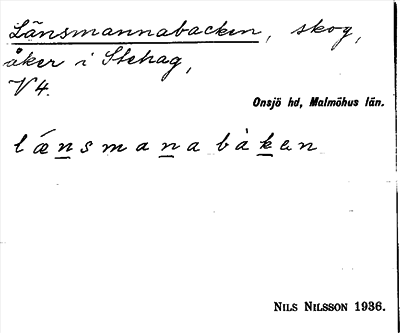 Länsmannabacken, skog,
åker i Stehag,
V 4.
Onsjö hd, Malmöhus län.
lǽn̲sman̲a bàk̲en
NILS NILSSON 1936.